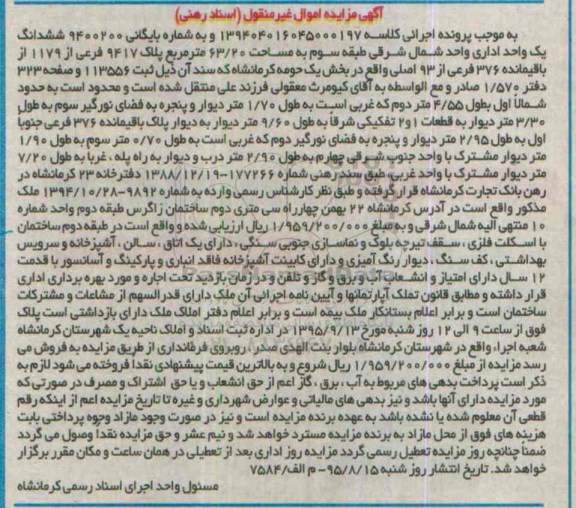 آگهی مزایده اموال غیرمنقول (اسناد رهنی)
به موجب پرونده اجرائی کلاسه ۱۳۹۴۰۴۰۱۶۰۴۵۰۰۰۱۹۷ و به شماره بایگانی ۹۴۰۰۲۰۰ ششدانگ
یک واحد اداری واحد شمال شرقی طبقه سوم به مساحت ۶۳/۲۰ مترمربع پلاک ۹۴۱۷ فرعی از ۱۱۷۹ از
باقیمانده ۳۷۶ فرعی از ۹۳ اصلی واقع در بخش یک حومه کرمانشاه که سند آن ذیل ثبت ۱۱۳۵۵۶ و صفحه ۳۲۳
دفتر ۱/۵۷۰ صادر و مع الواسطه به آقای کیومرث معقولی فرزند علی منتقل شده است و محدود است به حدود
شمالاً اول بطول ۴/۵۵ متر دوم که غربی است به طول ۱/۷۰ متر دیوار و پنجره به فضای نورگیر سوم به طول
۳/۳۰ متر دیوار به قطعات ۱و۲ تفکیکی شرقاً به طول ۹/۶۰ متر دیوار به دیوار پلاک باقیمانده ۳۷۶ فرعی جنوباً
اول به طول ۲/۹۵ متر دیوار و پنجره به فضای نورگیر دوم که غربی است به طول ۰/۷۰ متر سوم به طول ۱/۹۰
متر دیوار مشترک با واحد جنوب شرقی چهارم به طول ۲/۹۰ متر درب و دیوار به راه پله ، غربا به طول ۷/۲۰
متر دیوار مشترک با واحد غربی، طبق سند رهنی شماره ۱۷۷۲۶۶-۱۳۸۸/۱۲/۱۹ دفترخانه ۲۳ کرمانشاه در
رهن بانک تجارت کرمانشاه قرار گرفته و طبق نظر کارشناس رسمی وارده به شماره ۹۸۹۲-۱۳۹۴/۱۰/۲۸ ملک
مذکور واقع است در آدرس کرمانشاه ۲۲ بهمن چهارراه سی متری دوم ساختمان زاگرس طبقه دوم واحد شماره
۱۰ منتهی الیه شمال شرقی و به مبلغ ۱/۹۵۹/۲۰۰/۰۰۰ ریال ارزیابی شده و واقع است در طبقه دوم ساختمان
با اسکلت فلزی ، سقف تیرچه بلوک و نماسازی جنوبی سنگی ، دارای یک اتاق ، سالن ، آشپزخانه و سرویس
بهداشتی ، کف سنگ ، دیوار رنگ آمیزی و دارای کابینت آشپزخانه فاقد انباری و پارکینگ و آسانسور با قدمت
۱۲ سال دارای امتیاز و انشعابات آب و برق و گاز و تلفن و در زمان بازدید تحت اجاره و مورد بهره برداری اداری
قرار داشته و مطابق قانون تملک آپارتمانها و آیین نامه اجرائی آن ملک دارای قدرالسهم از مشاعات و مشترکات
ساختمان است و برابر اعلام بستانکار ملک بیمه است و برابر اعلام دفتر املاک ملک دارای بازداشتی است پلاک
فوق از ساعت ۹ الی ۱۲ روز شنبه مورخ ۱۳۹۵/۹/۱۳ در اداره ثبت اسناد و املاک ناحیه یک شهرستان کرمانشاه
شعبه اجرا، واقع در شهرستان کرمانشاه بلوار بنت الهدی صدر ، روبروی فرمانداری از طریق مزایده به فروش می
رسد مزایده از مبلغ ۱/۹۵۹/۲۰۰/۰۰۰ ریال شروع و به بالاترین قیمت پیشنهادی نقداً فروخته می شود لازم به
ذکر است پرداخت بدهی های مربوط به آب ، برق ، گاز اعم از حق انشعاب و یا حق اشتراک و مصرف در صورتی که
مورد مزایده دارای آنها باشد و نیز بدهی های مالیاتی و عوارض شهرداری و غیره تا تاریخ مزایده اعم از اینکه رقم
قطعی آن معلوم شده یا نشده باشد به عهده برنده مزایده است و نیز در صورت وجود مازاد وجوه پرداختی بابت
هزینه های فوق از محل مازاد به برنده مزایده مسترد خواهد شد و نیم عشر و حق مزایده نقداً وصول می گردد
ضمناً چنانچه روز مزایده تعطیل رسمی گردد مزایده روز اداری بعد از تعطیلی در همان ساعت و مکان مقرر برگزار
خواهد شد. تاریخ انتشار روز شنبه ۹۵/۸/۱۵- م الف/۷۵۸۴
مسئول واحد اجرای اسناد رسمی کرمانشاه